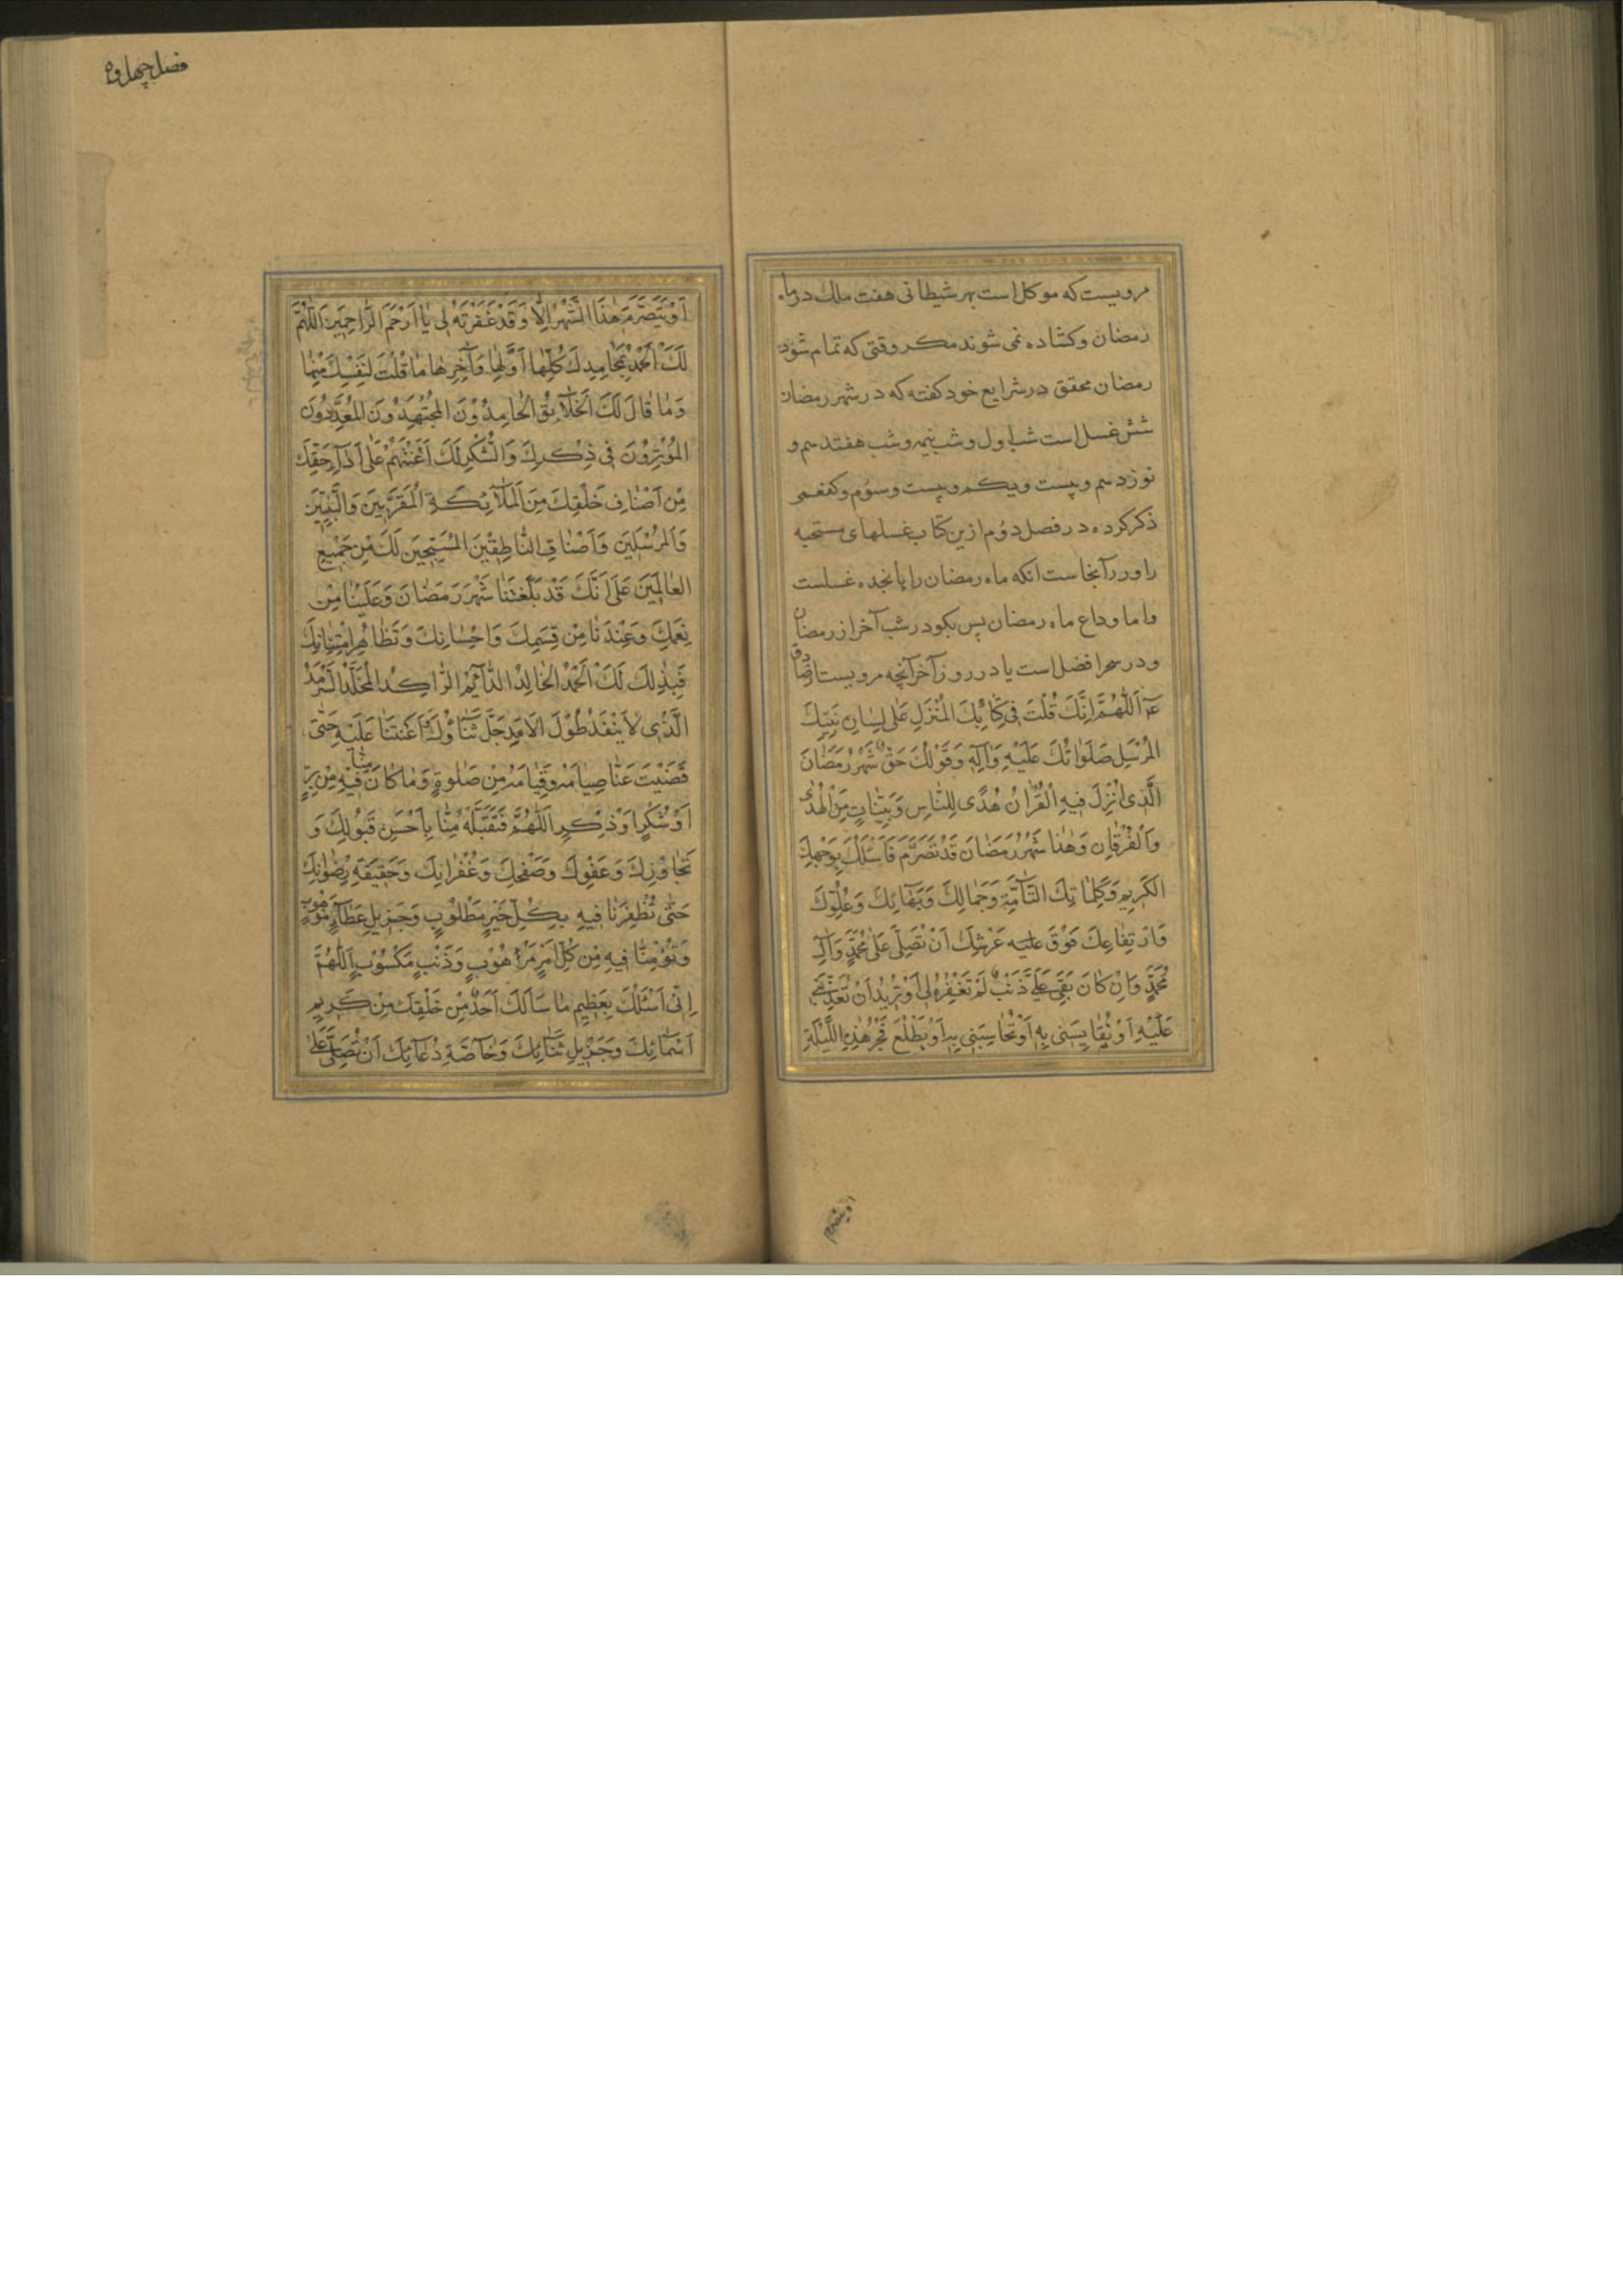 مرویست که موکل است بهر شیطانی هفت ملک در ماه
رمضان و کشاده نمی شوند مکر وقتی که تمام شود
رمضان محقق در شرایع خود کفته که در شهر رمضان
شش غسل است شب اول و شب نیمه و شب هفتدهم و
نوزدهم و بیست و یکم و بیست و سوم و کفعمی
ذکر کرده در فصل دوم ازین کتاب غسلهای مستحبه
را و در آنجاست انکه ماه رمضان را پانجده غسلست
و اما وداع ماه رمضان پس بکو در شب آخر از رمضان
و در سحر افضل است یا در روز آخر آنچه مرویست از صادق
عَ اَللّٰهُمَّ اِنَّكَ قُلْتَ فِي كِتَابِكَ الْمُنْزَلِ عَلٰى لِسَانِ نَبِيِّكَ
الْمُرْسَلِ صَلَوَاتُكَ عَلَيْهِ وَاٰلِهِ وَقَوْلُكَ حَقٌّ شَهْرُ رَمَضَانَ
الَّذِي اُنْزِلَ فِيهِ الْقُرْاٰنُ هُدًى لِلنَّاسِ وَبَيِّنَاتٍ مِنَ الْهُدٰى
وَالْفُرْقَانِ وَهٰذَا شَهْرُ رَمَضَانَ قَدْ تَصَرَّمَ فَاَسْئَلُكَ بِوَجْهِكَ
الْكَرِيمِ وَكَلِمَاتِكَ التَّآمَّةِ وَجَمَالِكَ وَبَهَائِكَ وَعُلُوِّكَ
وَارْتِفَاعِكَ فَوْقَ عَرْشِكَ اَنْ تُصَلِّيَ عَلٰى مُحَمَّدٍ وَاٰلِ
مُحَمَّدٍ وَاِنْ كَانَ بَقِيَ عَلَيَّ ذَنْبٌ لَمْ تَغْفِرْهُ لِي اَوْ تُرِيدُ اَنْ تُعَذِّبَنِي
عَلَيْهِ اَوْ تُقَايِسَنِي بِهِ اَوْ تُحَاسِبَنِي بِهِ اَوْ يَطْلُعَ فَجْرُ هٰذِهِ اللَّيْلَةِ
او یتصرم
فصل چهل و
اَوْ يَتَصَرَّمَ هٰذَا الشَّهْرُ اِلَّا وَقَدْ غَفَرْتَهُ لِي يَا اَرْحَمَ الرَّاحِمِينَ اَللّٰهُمَّ
لَكَ الْحَمْدُ بِمَحَامِدِكَ كُلِّهَا اَوَّلِهَا وَاٰخِرِهَا مَا قُلْتَ لِنَفْسِكَ مِنْهَا
وَمَا قَالَ لَكَ الْخَلَآئِقُ الْحَامِدُونَ الْمُجْتَهِدُونَ الْمُعَدِّدُونَ
الْمُؤْثِرُونَ فِي ذِكْرِكَ وَالشُّكْرِ لَكَ اَعَنْتَهُمْ عَلٰى اَدَآءِ حَقِّكَ
مِنْ اَصْنَافِ خَلْقِكَ مِنَ الْمَلَآئِكَةِ الْمُقَرَّبِينَ وَالنَّبِيِّينَ
وَالْمُرْسَلِينَ وَاَصْنَافِ النَّاطِقِينَ الْمُسَبِّحِينَ لَكَ مِنْ جَمِيعِ
الْعَالَمِينَ عَلٰى اَنَّكَ قَدْ بَلَّغْتَنَا شَهْرَ رَمَضَانَ وَعَلَيْنَا مِنْ
نِعَمِكَ وَعِنْدَنَا مِنْ قِسَمِكَ وَاِحْسَانِكَ وَتَظَاهُرِ امْتِنَانِكَ
فَبِذٰلِكَ لَكَ الْحَمْدُ الْخَالِدُ الدَّآئِمُ الرَّاكِدُ الْمُخَلَّدُ السَّرْمَدُ
الَّذِي لَا يَنْفَدُ طُولَ الْاَمَدِ جَلَّ ثَنَاؤُكَ اَعَنْتَنَا عَلَيْهِ حَتّٰى
قَضَيْتَ عَنَّا صِيَامَهُ وَقِيَامَهُ مِنْ صَلٰوةٍ وَمَا كَانَ مِنَّا فِيهِ مِنْ بِرٍّ
اَوْ شُكْرٍ اَوْ ذِكْرٍ اَللّٰهُمَّ فَتَقَبَّلْهُ مِنَّا بِاَحْسَنِ قَبُولِكَ وَ
تَجَاوُزِكَ وَعَفْوِكَ وَصَفْحِكَ وَغُفْرَانِكَ وَحَقِيقَةِ رِضْوَانِكَ
حَتّٰى تُظْفِرَنَا فِيهِ بِكُلِّ خَيْرٍ مَطْلُوبٍ وَجَزِيلِ عَطَآءٍ مَوْهُوبٍ
وَتُؤْمِنَنَا فِيهِ مِنْ كُلِّ اَمْرٍ مَرْهُوبٍ وَذَنْبٍ مَكْسُوبٍ اَللّٰهُمَّ
اِنِّي اَسْئَلُكَ بِعَظِيمِ مَا سَاَلَكَ اَحَدٌ مِنْ خَلْقِكَ مِنْ كَرِيمِ
اَسْمَآئِكَ وَجَزِيلِ ثَنَآئِكَ وَخَآصَّةِ دُعَآئِكَ اَنْ تُصَلِّيَ عَلٰى